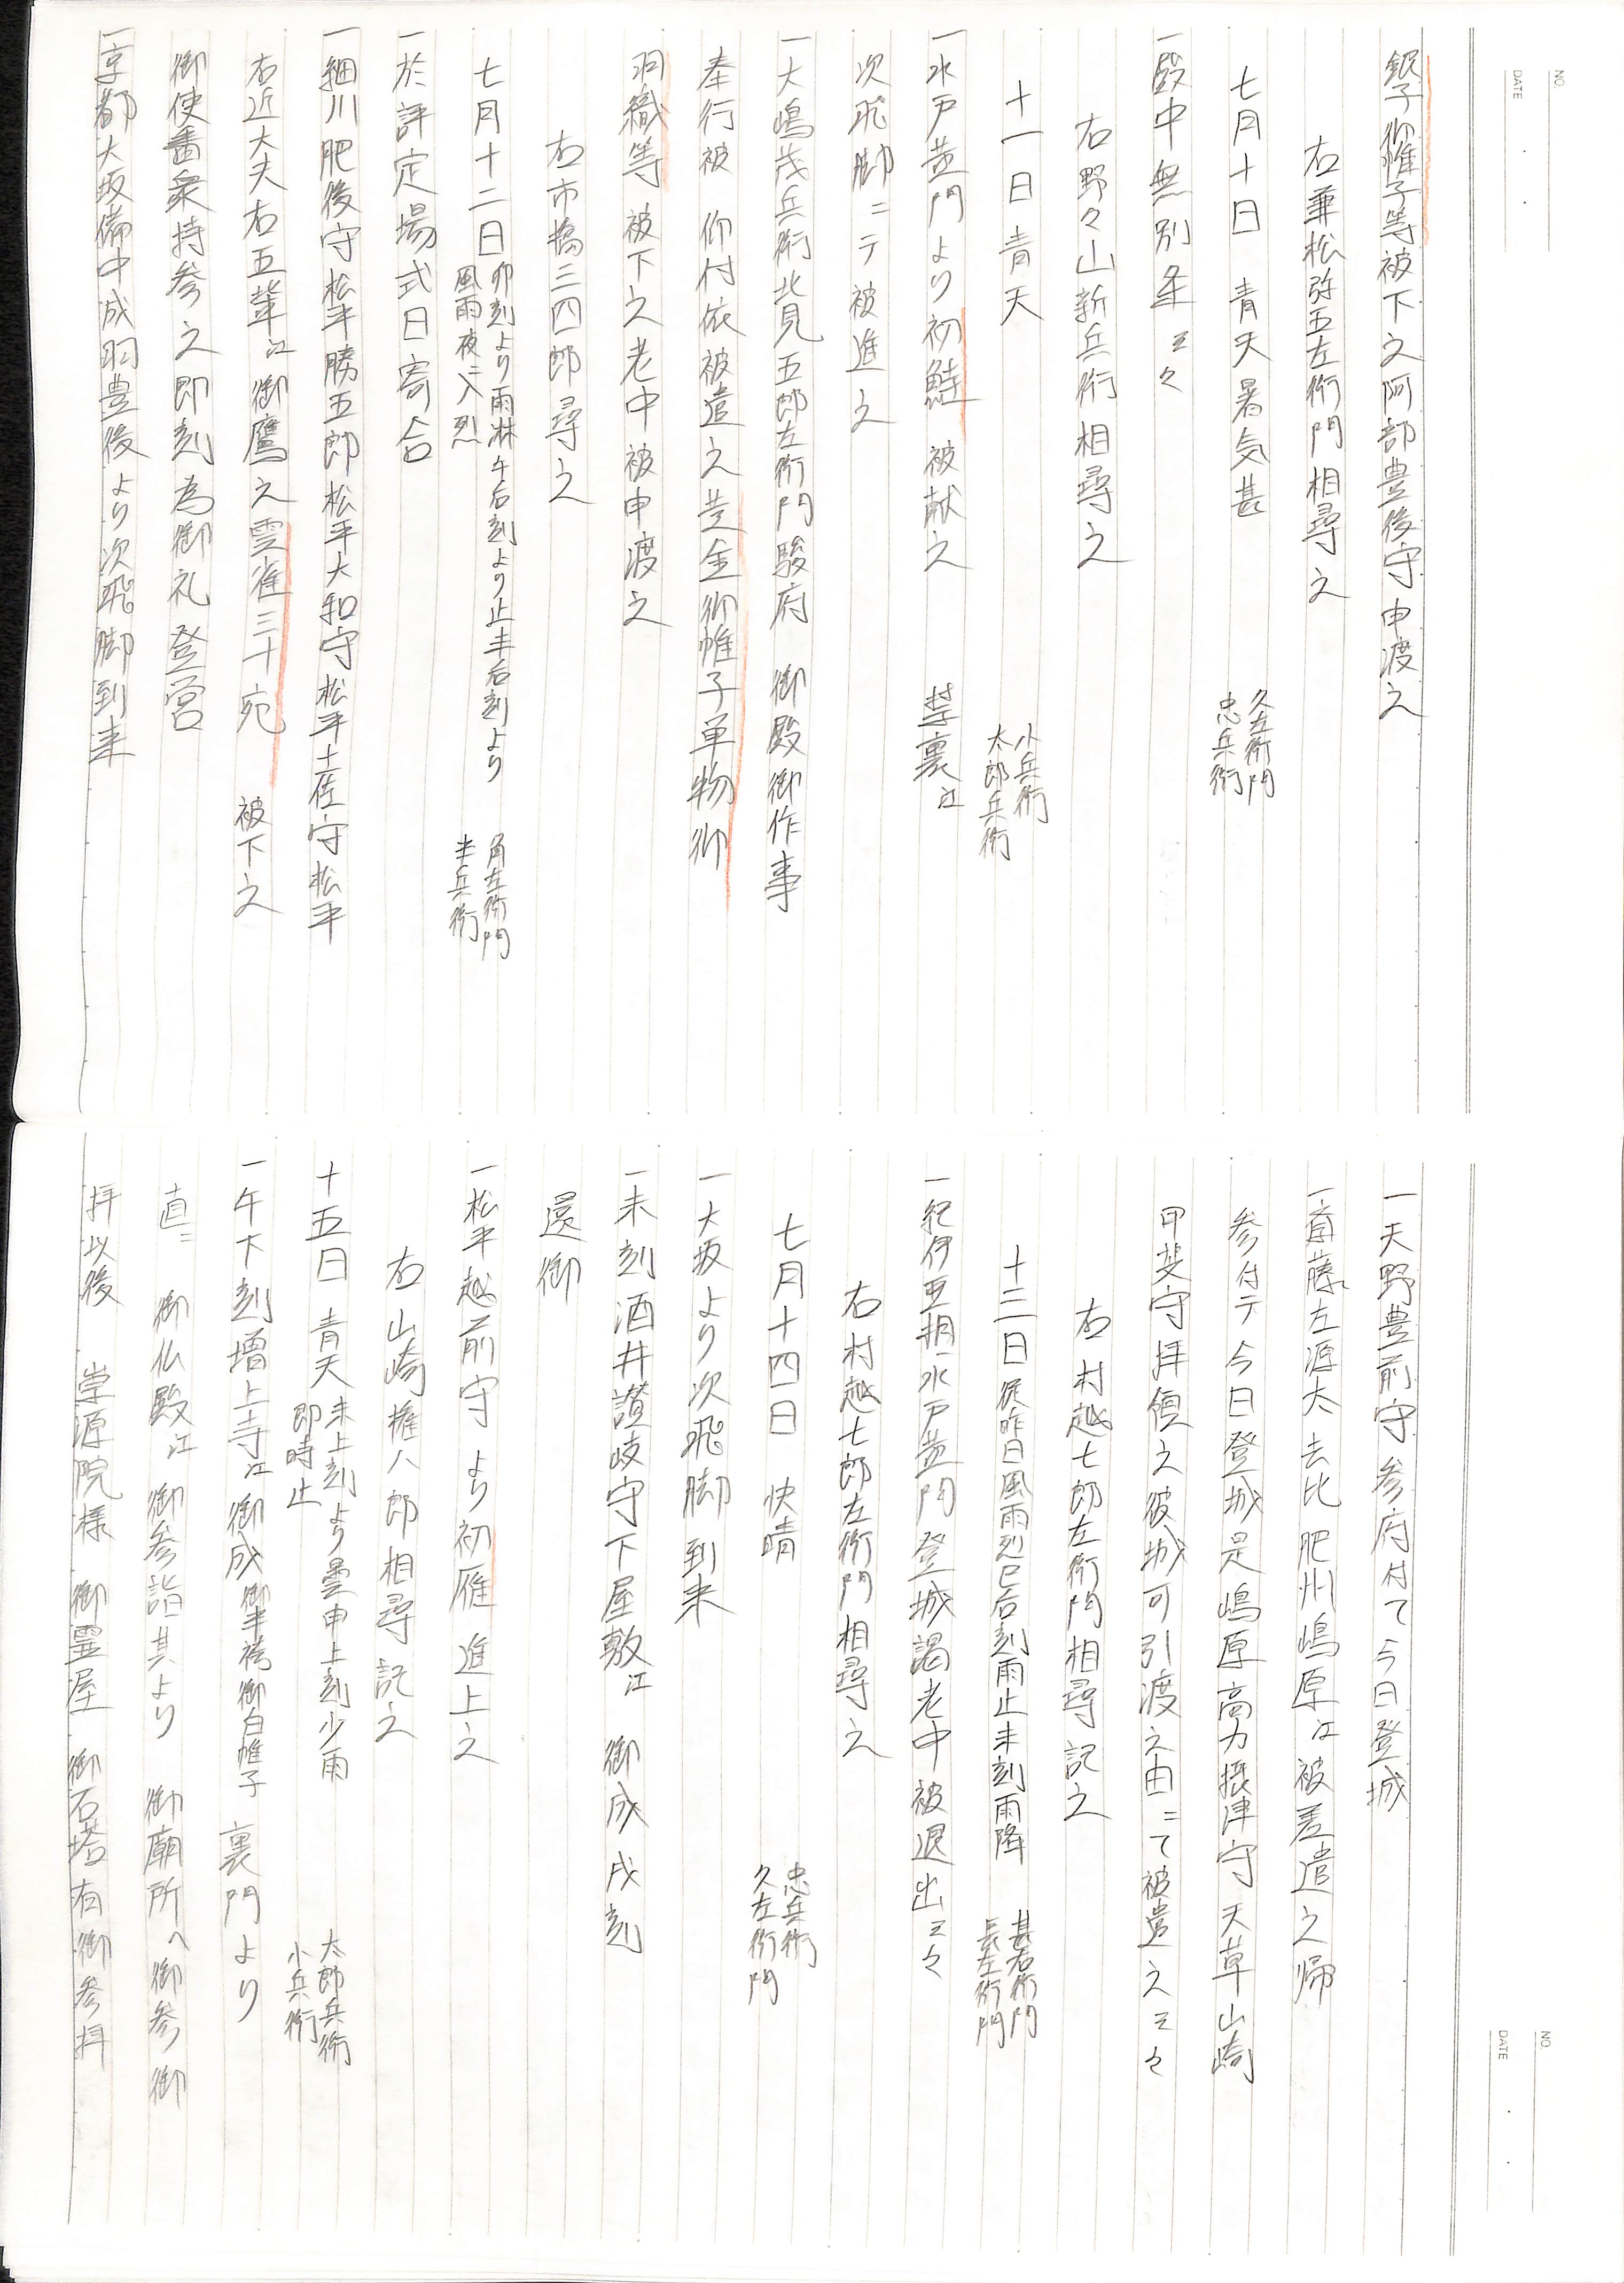 NO.
DATE
銀子御帷子等被下之阿部豊後守申渡之
右兼松弥五左衛門相尋之
七月十日 青天暑気甚 久左衛門 忠兵衛
一殿中無別条云々
右野々山新兵衛相尋之
十一日青天 小兵衛 太郎兵衛
一水戸黄門より初鮭被献之 禁裏江
次飛脚ニテ被進之
一大嶋茂兵衛北見五郎左衛門駿府 御殿御作事
奉行被 仰付依被遣之黄金御帷子単物御
羽織等被下之老中被申渡之
右市橋三四郎尋之
七月十二日 卯刻より雨淋午后刻より止未后刻より 風雨夜ニ入烈 角左衛門 半兵衛
一於評定場式日寄合
一細川肥後守松平勝五郎松平大和守松平土佐守松平
右近大夫右五輩江御鷹之雲雀三十宛 被下之
御使番衆持参之即刻為御礼登営
一京都大坂備中成羽豊後より次飛脚到来
NO.
DATE
一天野豊前守参府付て今日登城
一斎藤左源太去比肥州嶋原江被差遣之帰
参付テ今日登城是嶋原高力摂津守天草山崎
甲斐守拝領之彼城可引渡之由ニて被遣之云々
右村越七郎左衛門相尋記之
十三日 従昨日風雨烈巳后刻雨止未刻雨降 甚右衛門 長左衛門
一紀伊亜相水戸黄門登城謁老中被退出云々
右村越七郎左衛門相尋之
七月十四日 快晴 忠兵衛 久左衛門
一大坂より次飛脚到来
一未刻酒井讃岐守下屋敷江 御成戌刻
還御
一松平越前守より初雁進上之
右山崎権八郎相尋記之
十五日 青天 未上刻より曇申上刻少雨 即時止 太郎兵衛 小兵衛
一午下刻増上寺江御成 御半袴御白帷子 裏門より
直ニ 御仏殿江御参詣其より 御廟所へ御参御
拝以後 崇源院様 御霊屋 御石塔有御参拝